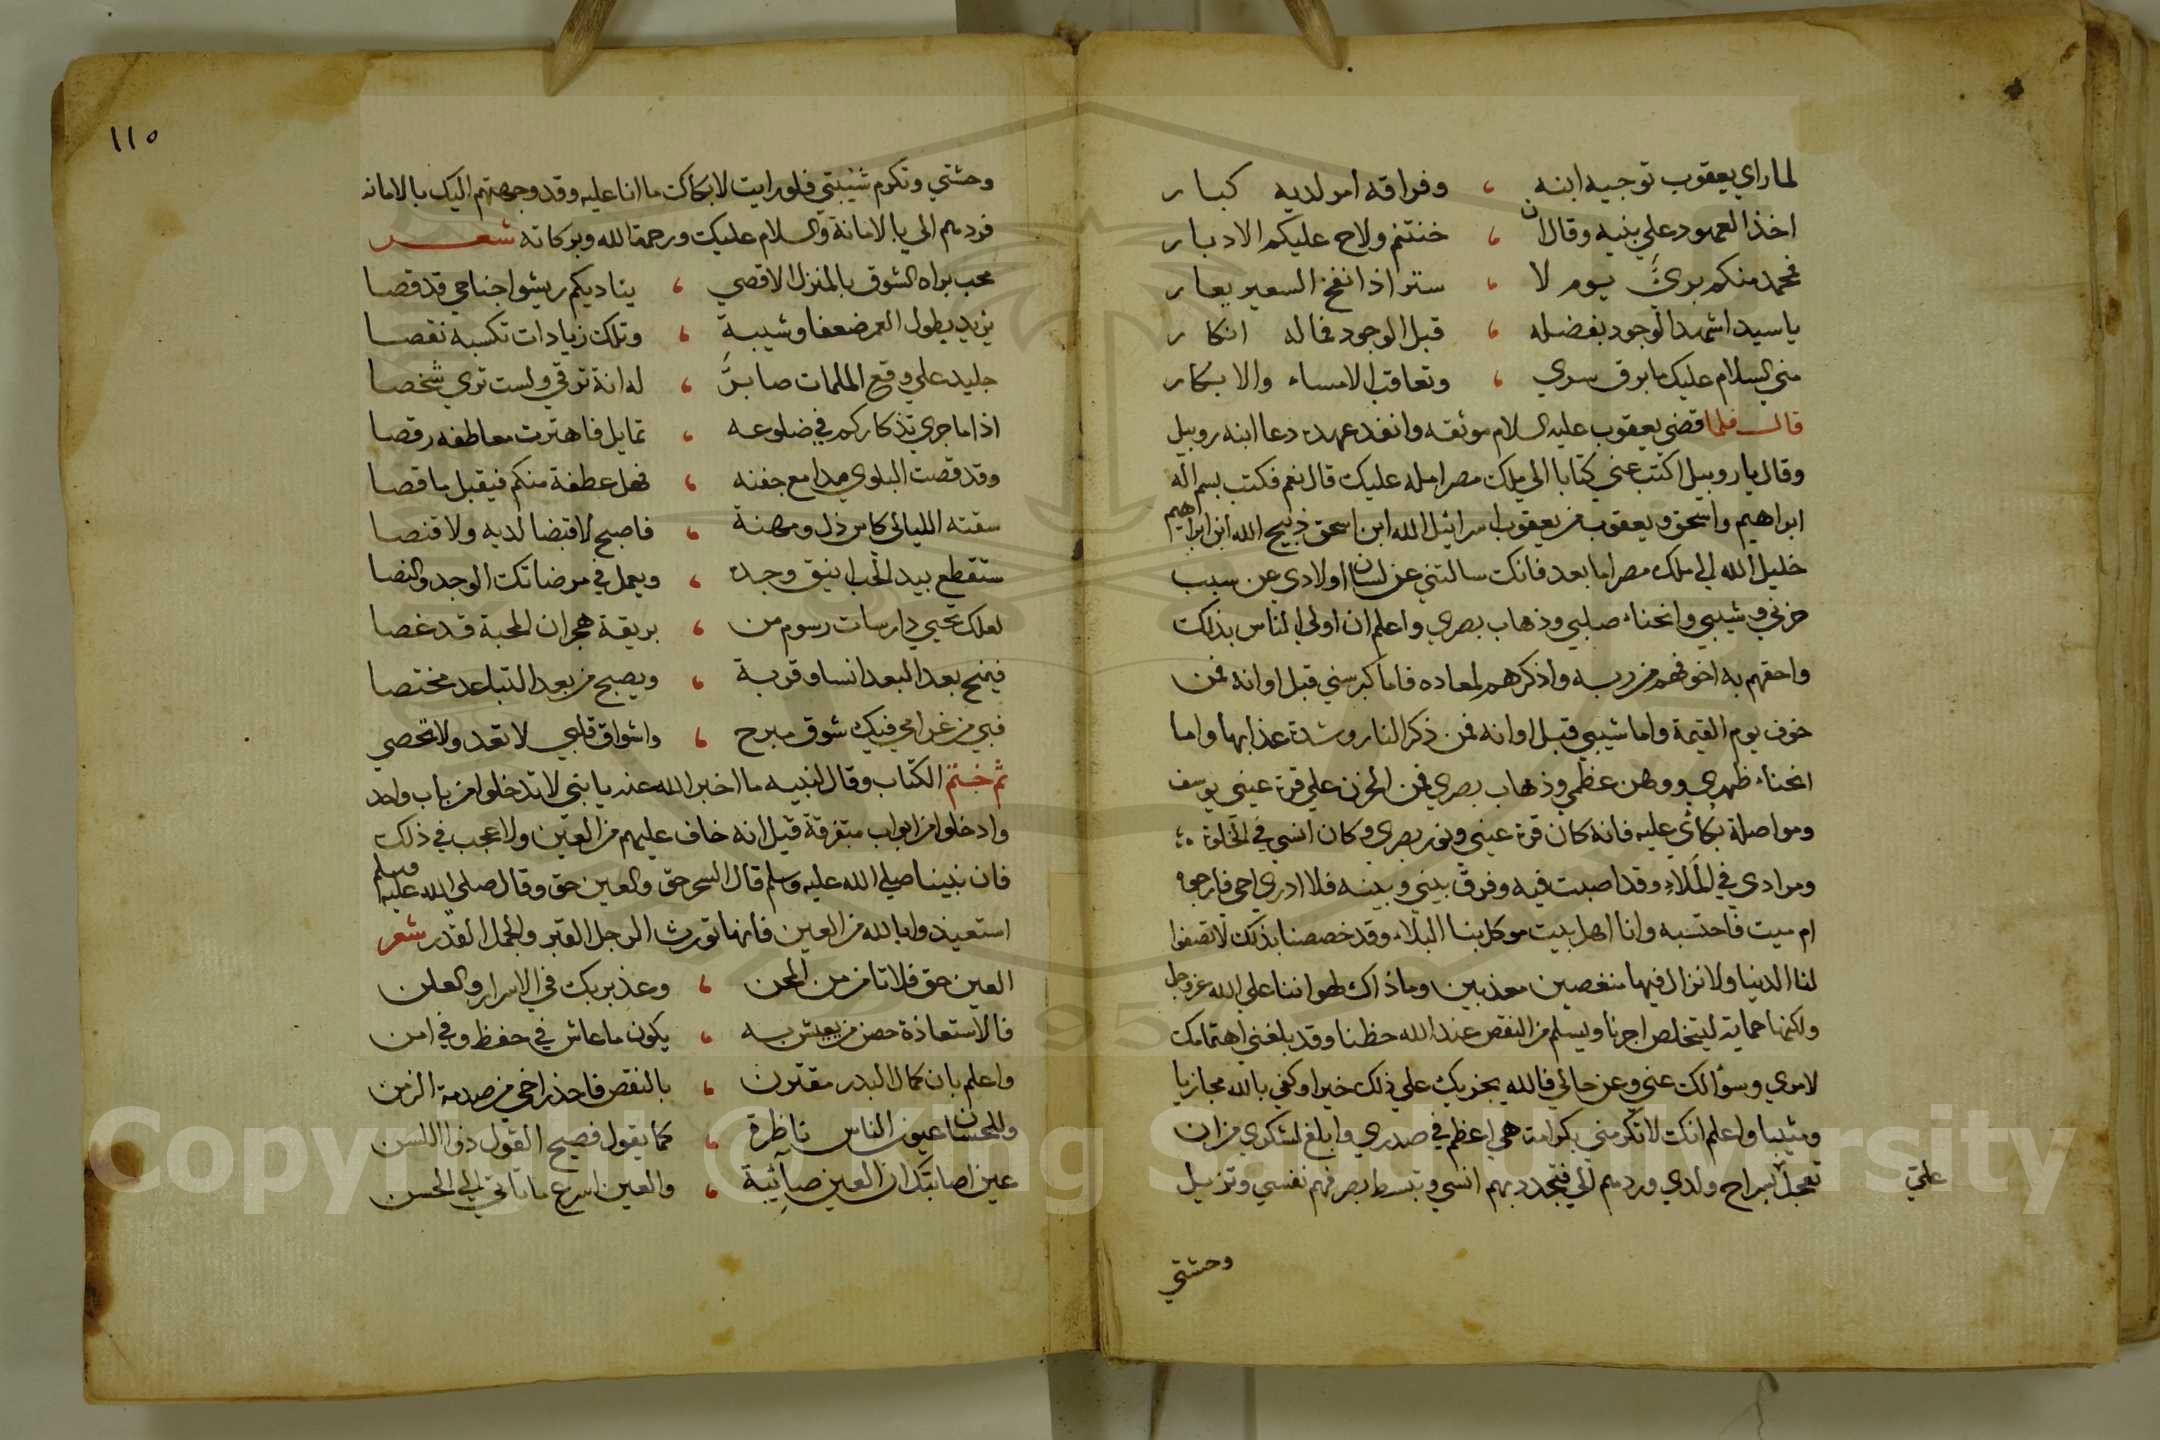 لما راي يعقوب توجيه ابنه ، وفراقه امر لديه كبار
اخذ العهود علي بنيه وقال ان ، خنتم ولاح عليكم الادبار
فمحمد منكم بريء يوم لا ، ستر اذا نفخ السعير يعار
يا سيد اشهد الوجود بفضله ، قبل الوجود فما له انكار
مني السلام عليك ما برق سري ، وتعاقب الامساء والابكار
قال فلما قضي يعقوب عليه السلام موثقه وانفد عهده دعا ابنه روبيل
وقال يا روبيل اكتب عني كتابا الي ملك مصر امله عليك قال نعم فكتب بسم اله
ابراهيم واسحق ويعقوب من يعقوب اسرائيل الله ابن اسحق ذبيح الله ابن ابراهيم
خليل الله الي ملك مصر اما بعد فانك سالتني عن لسان اولادي عن سبب
حزني وشيبي وانحناء صلبي وذهاب بصري واعلم ان اولي الناس بذلك
واحقهم به اخوفهم من ربه واذكرهم لمعاده فاما كبر سني قبل اوانه فمن
خوف يوم القيمة واما شيبي قبل اوانه فمن ذكر النار وشدة عذابها واما
انحناء ظهري ووهن عظمي وذهاب بصري فمن الحزن علي قرة عيني يوسف
ومواصلة بكائي عليه فانه كان قرة عيني ونور بصري وكان انسي في الخلوة
ومرادي في الملاء وقد اصبت فيه وفرق بيني وبينه فلا ادري احي فارجوه
ام ميت فاحتسبه وانا اهل بيت موكل بنا البلاء وقد خصصنا بذلك لا تصفوا
لنا الدنيا ولا نزال فيها منغصين معذبين وما ذاك لهواننا علي الله عز وجل
ولكنها حماية ليتخلص اجرنا ويسلم من النقص عند الله حظنا وقد بلغني اهتمامك
لامري وسؤالك عني وعن حالي فالله يجزيك علي ذلك خيرا وكفي بالله مجازيا
ومثيبا واعلم انك لا تكرمني بكرامة هي اعظم في صدري وابلغ لشكري من ان
تعجل سراح ولدي وردهم الي فتجدد بهم انسي وتبسط بصرفهم نفسي وتزيل
علي
وحشتي
١١٥
وحشتي وتكرم شيبتي فلو رايت لابكاك ما انا عليه وقد وجهتهم اليك بالامانه
فردهم الي بالامانة والسلام عليك ورحمة الله وبركاته شعر
محب براه الشوق بالمنزل الاقصي ، يناديكم ريشوا جناحي قد قصا
يزيد بطول العمر ضعفا وشيبة ، وتلك زيادات تكسبه نقصا
جليد علي وقع الملمات صابر ، له انة ترقي ولست تري شخصا
اذا ما جري تذكاركم في ضلوعه ، تمايل فاهتزت معاطفه رقصا
وقد قصت البلوي مدامع جفنه ، فهل عطفة منكم فيقبل ما قصا
سقته الليالي كاس ذل ومهنة ، فاصبح لا قبضا لديه ولا قنصا
ستقطع بيد الحب اينق وجده ، ويعمل في مرضاتك الوجد والنصا
لعلك تحيي دارسات رسوم من ، بريقة هجران المحبة قد غصا
فيمنح بعد البعد انسا وقربة ، ويصبح من بعد التباعد مختصا
فبي من غرامي فيك شوق مبرح ، واشواق قلبي لا تعد ولا تحصي
ثم ختم الكتاب وقال لبنيه ما اخبر الله عنه يا بني لا تدخلوا من باب واحد
وادخلوا من ابواب متفرقة قيل انه خاف عليهم من العين ولا عجب في ذلك
فان نبينا صلي الله عليه وسلم قال السحر حق والعين حق وقال صلي الله عليه وسلم
استعيذوا بالله من العين فانها تورث الرجل القبر والجمل القدر شعر
العين حق فلا تامن من المحن ، وعذ بربك في الاسرار والعلن
فالاستعاذة حصن من يعش به ، يكون ما عاش في حفظ وفي امن
واعلم بان كمال البدر مقترن ، بالنقص فاحذر اخي من صدمة الزمن
وللحسان عيون الناس ناظرة ، كما يقول فصيح القول ذو اللسن
عين اصابتك ان العين صائبة ، والعين اسرع ما تاتي الي الحسن
Copyright © King Saud University